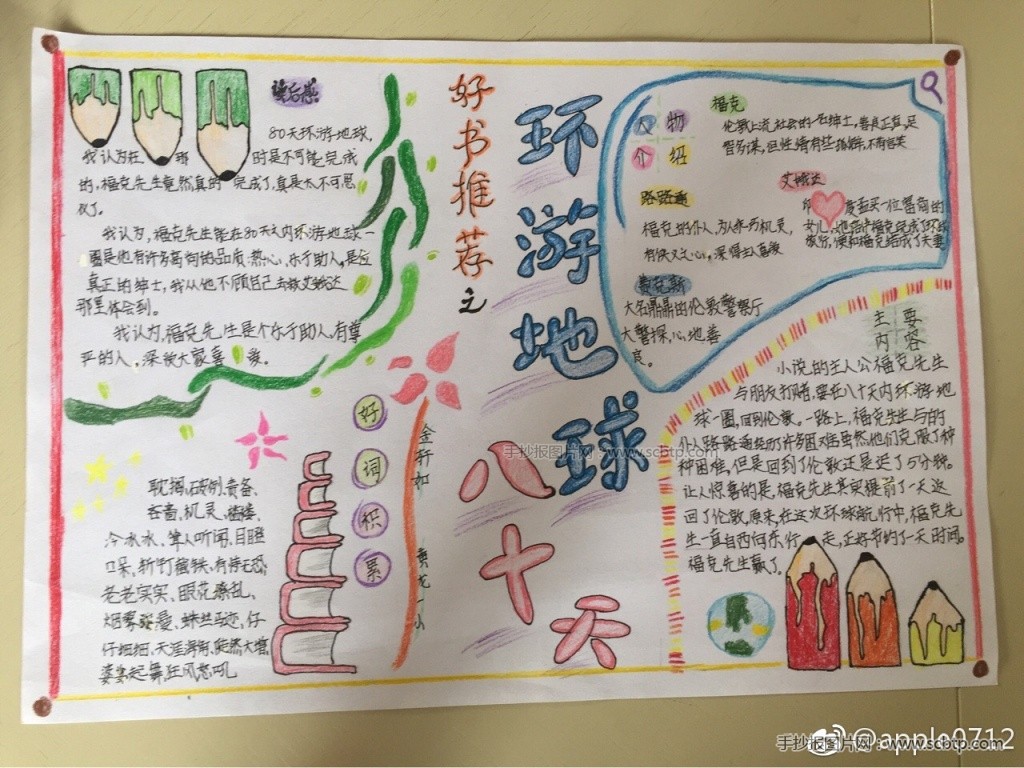 好书推荐之
环游地球
八十天
读后感
80天环游地球,
我认为在 球 时是不可能完成
的,福克先生竟然真的 完成了,真是太不可思
议了。
我认为,福克先生能在80天之内环游地球一
圈是他有许多高尚的品质:热心、乐于助人,是位
真正的绅士,我从他不顾自己去救艾娥达
那里体会到。
我认为,福克先生是个乐于助人,有尊
严的人,深被大家喜 爱。
人物
介绍
福克
伦敦上流社会的一名绅士,善良正直,足
智多谋,但性情有些
路路通
福克的仆人,为人机灵,
有侠义之心,深得主人喜爱
艾娥达
印 度孟买一位富商的
女儿,她陪伴福克完成了环球
旅行,便和福克结成了夫妻
费克斯
大名鼎鼎的伦敦警察厅
大警探,心地善
良。
主要
内容
小说的主人公福克先生
与朋友打赌,要在八十天内环游地
球一圈,回到伦敦。一路上,福克先生与的
仆人路路通经历许多困难虽然他们克服了种
种困难,但是回到了伦敦还是迟了5分钟。
让人惊喜的是,福克先生其实提前了一天返
回了伦敦,原来,在这次环球航行中,福克先
生一直自西向东行 走,正好节约了一天时间。
福克先生赢了。
好词积累
耽搁、破例、责备、
吝啬、机灵、褴褛
冷冰冰、耸人听闻、目瞪
口呆、斩钉截铁、有恃无恐
老老实实、眼花缭乱、
烟雾 蛛丝马迹、仔
仔细细、天涯海角、
婆娑起舞、狂风怒吼
手抄报图片网:www.scbtp.com
@apple0712
手抄报图片网:www.scbtp.com